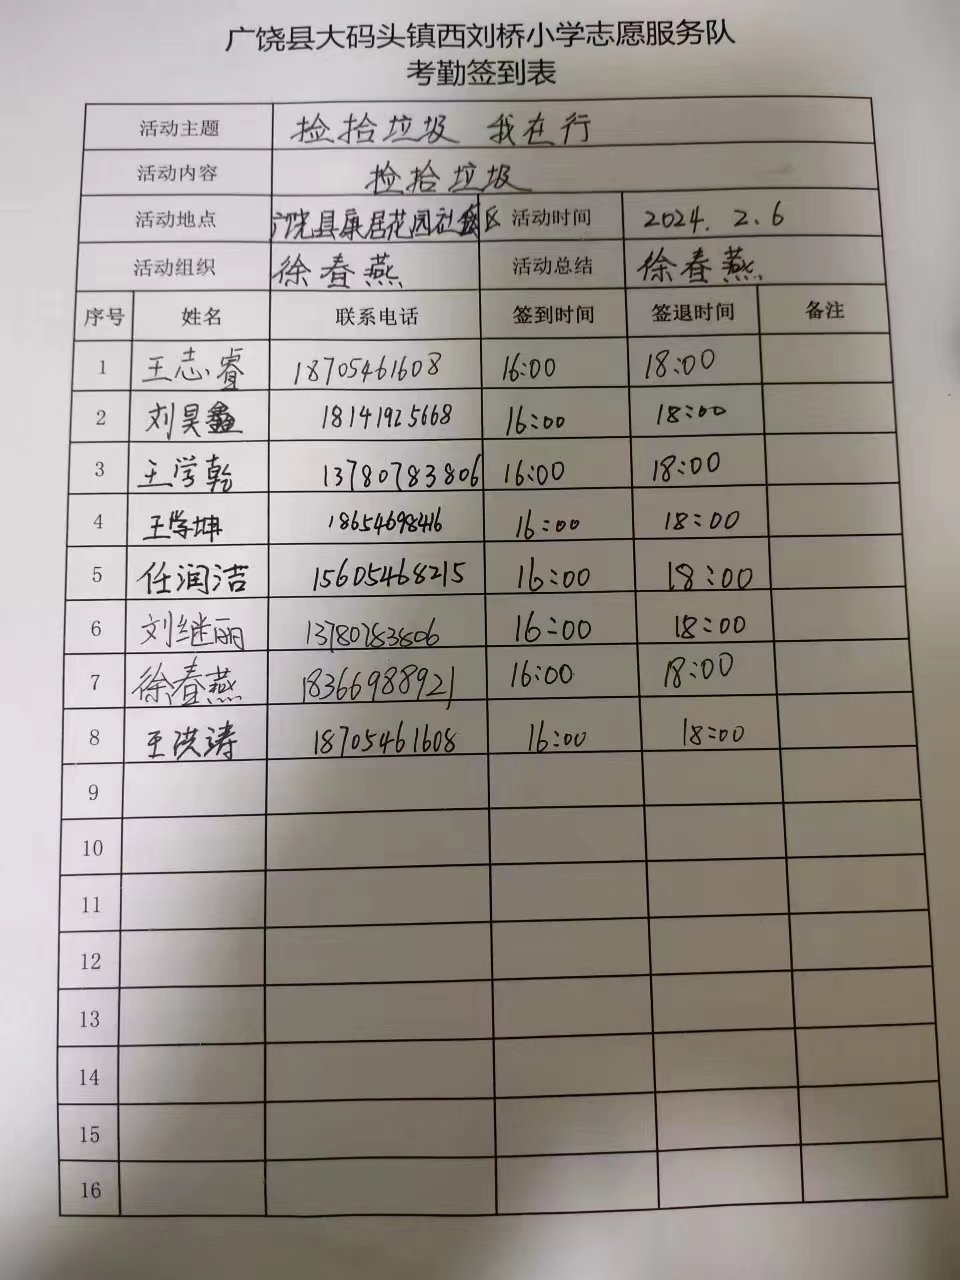 广饶县大码头镇西刘桥小学志愿服务队
考勤签到表
活动主题 捡拾垃圾 我在行
活动内容 捡拾垃圾
活动地点 广饶县康居花园社区 活动时间 2024.2.6
活动组织 徐春燕 活动总结 徐春燕
序号 姓名 联系电话 签到时间 签退时间 备注
1 王志睿 18705461608 16:00 18:00
2 刘昊鑫 18141925668 16:00 18:00
3 王学乾 13780783806 16:00 18:00
4 王学坤 18654698416 16:00 18:00
5 任润洁 15605468215 16:00 18:00
6 刘继丽 13780783806 16:00 18:00
7 徐春燕 18366988921 16:00 18:00
8 王洪涛 18705461608 16:00 18:00
9
10
11
12
13
14
15
16